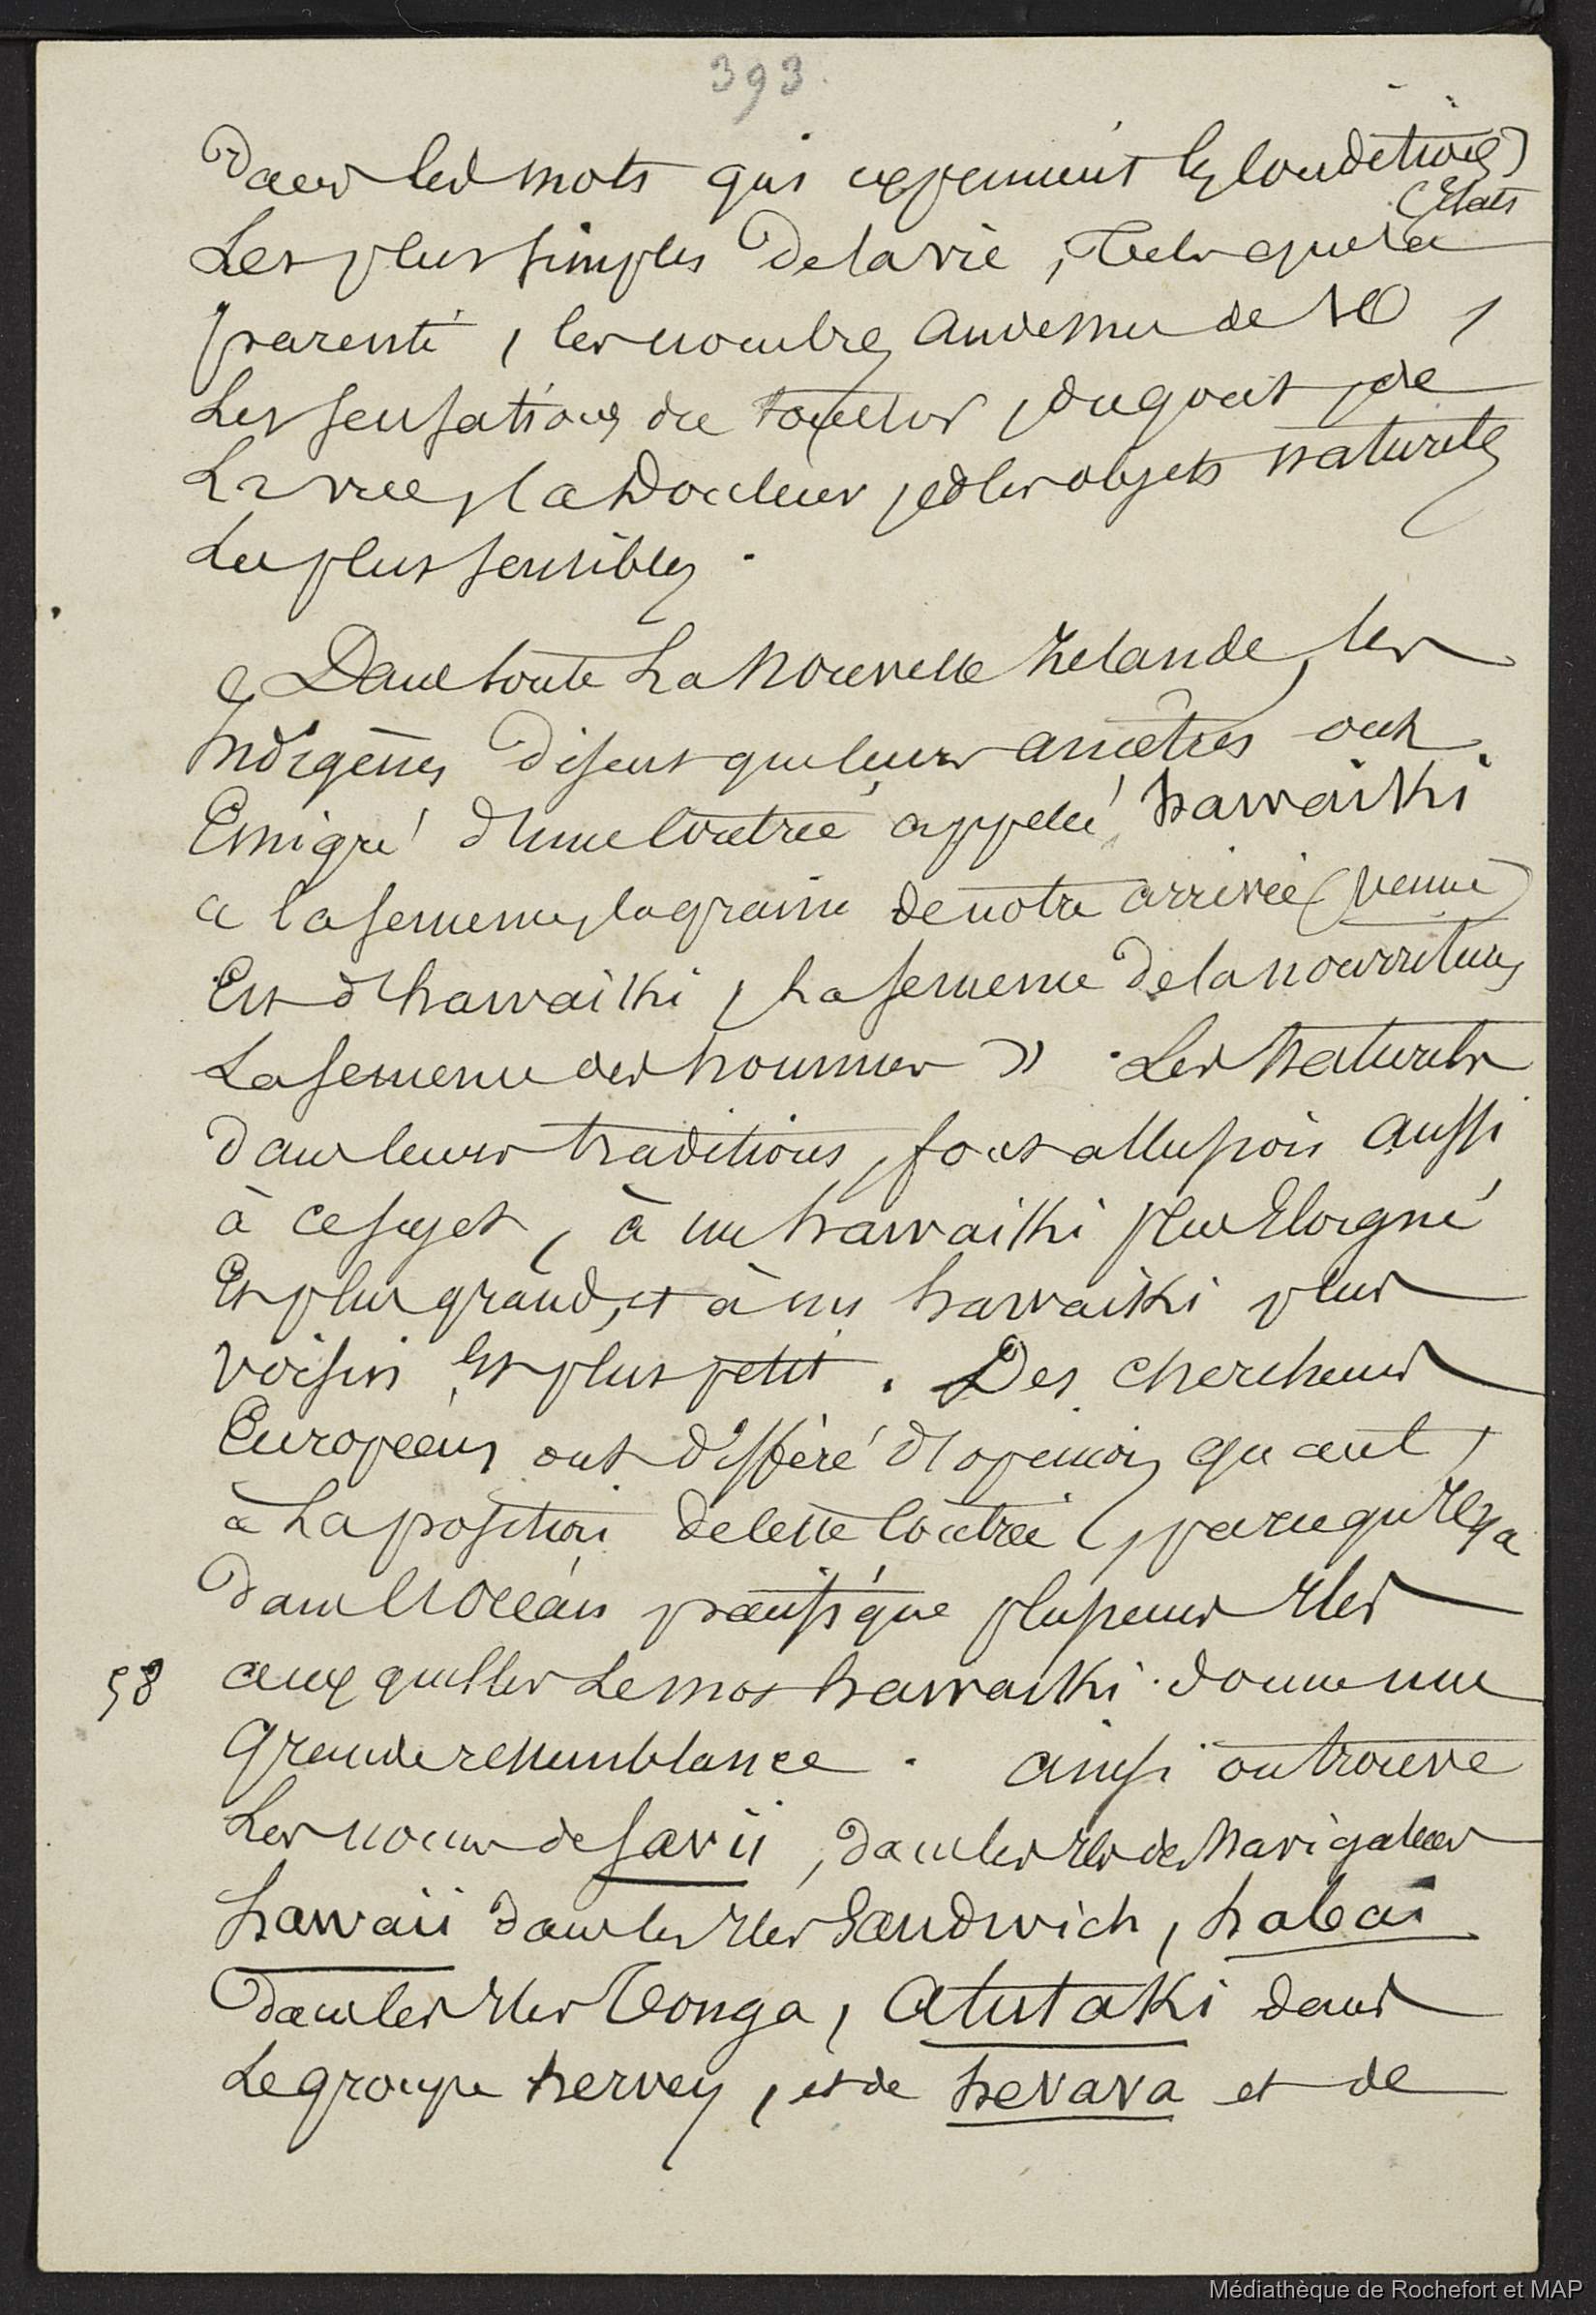 393.
Dans les mots qui expriment les conditions
(Etats
Les plus simples de la vie, tels que la
parenté, les nombres au dessus de 10,
Les sensations du toucher, du goût, de
La vue, la douleur, et les objets naturels
Les plus sensibles.
Dans toute La Nouvelle Zelande, les
Indigènes disent que leurs ancêtres ont
Emigré d'une Contrée appelée hawaïki
« la semence, la graine de notre arrivée (venue)
Est d'hawaiki, La semence de la nourriture,
La semence des hommes ». Les Naturels
dans leurs traditions, font allusion aussi
à ce sujet, à un hawaiki plus Eloigné
Et plus grand, et à un hawaiki plus
voisin Et plus petit. Des chercheurs
Européens ont différé d'opinion, quant,
à La position de cette Contrée, parcequ'Il y a
dans l'Océan pacifique plusieurs Iles
auxquelles Le mot hawaiki donne une
58
Grande ressemblance. ainsi on trouve
Les noms de Savii, dans les Iles des Navigateurs
hawaii dans les Iles Sandwich, habai
dans les Iles Tonga, Atutaki dans
Le groupe hervey, et de hevava et de
Médiathèque de Rochefort et MAP